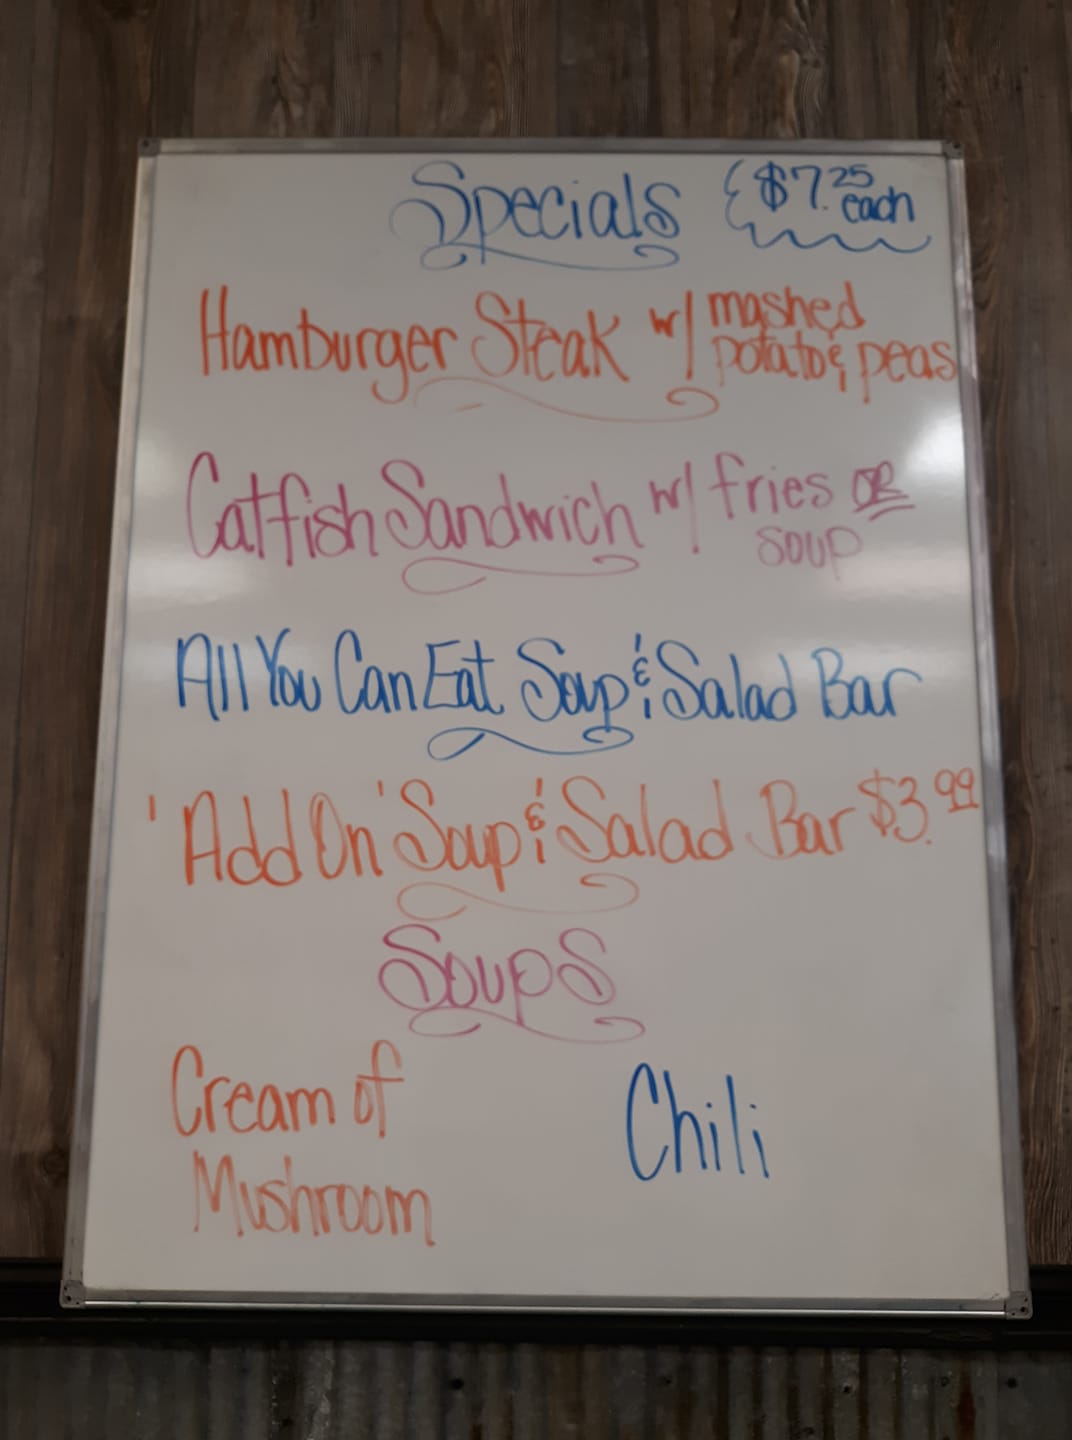 Specials $7.25 each
Hamburger Steak w/ mashed
potato & peas
Catfish Sandwich w/ fries OR
soup
All You Can Eat Soup & Salad Bar
'Add On' Soup & Salad Bar $3.99
Soups
Cream of
Mushroom
Chili